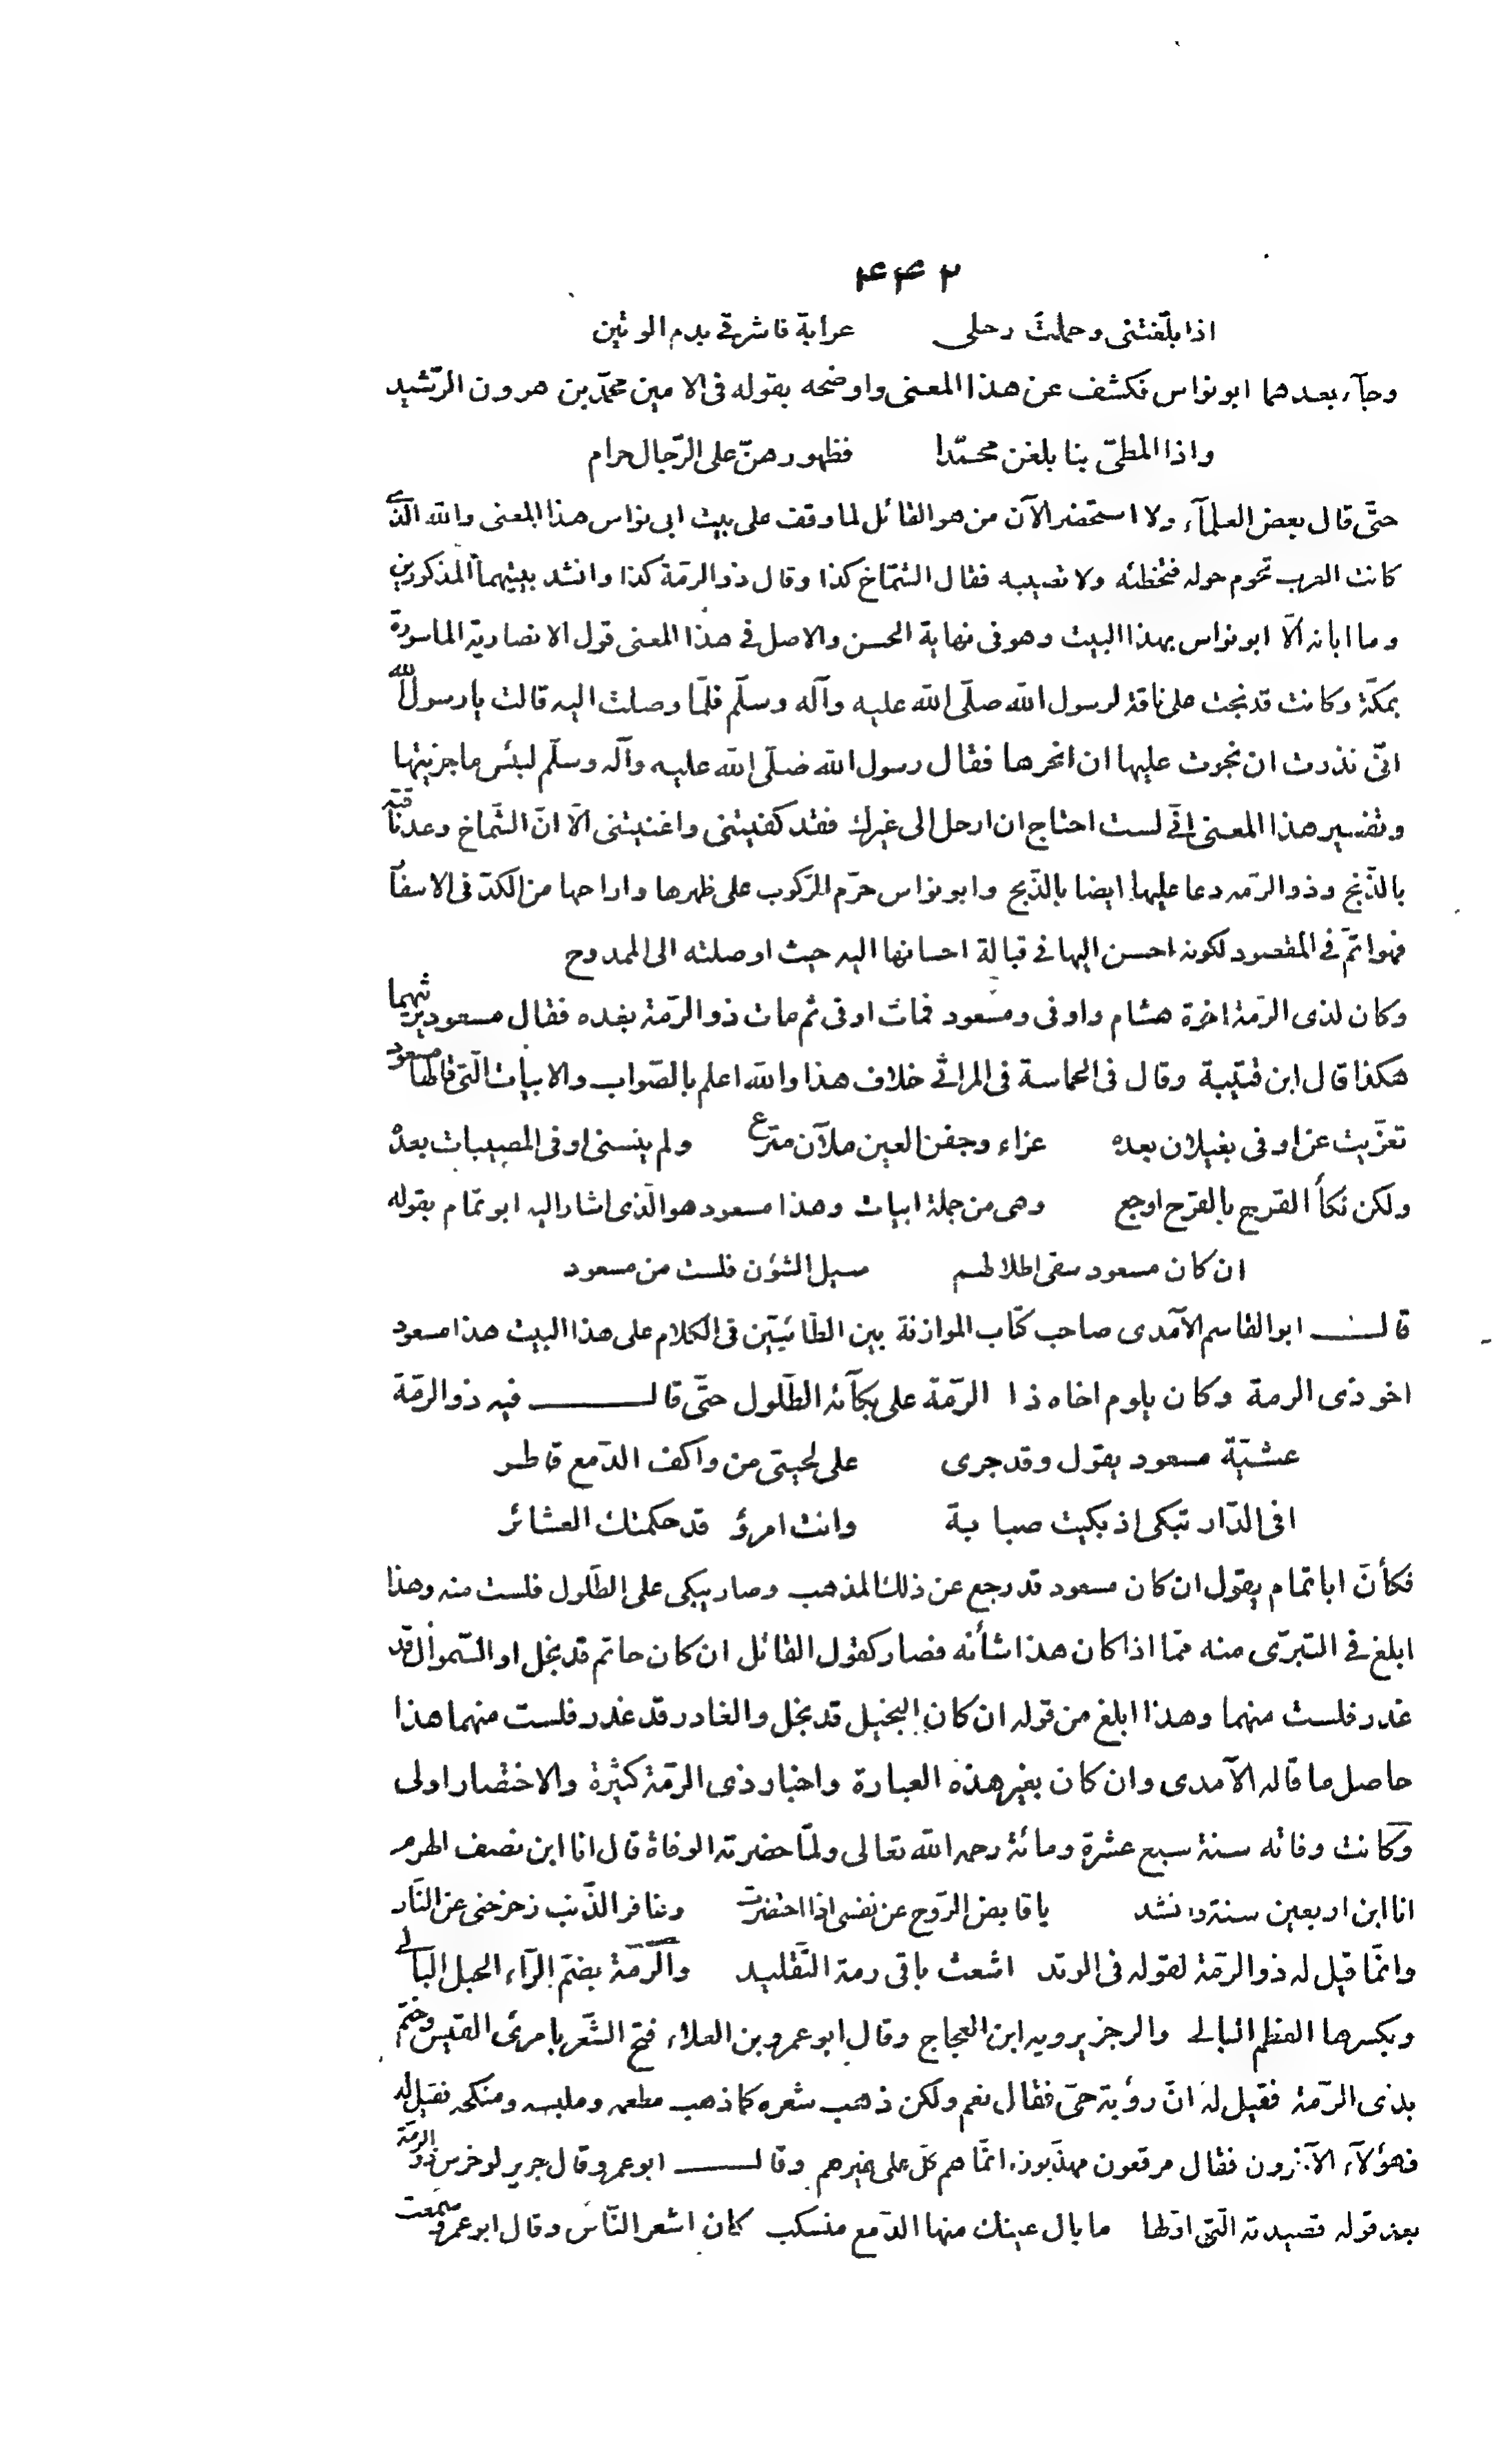 ۴۴۲
اذا بلّغتنى وحملت رحلى عرابة فاشرقى بدم الوتين
وجآء بعدهما ابو نواس فكشف عن هذا المعنى واوضحه بقوله فى الامين محمّد بن هرون الرّشيد
واذا المطىّ بنا بلغن محمّدا فظهورهنّ على الرّجال حرام
حتّى قال بعض العلمآء ولا استحضر الآن من هو القائل لما وقف على بيت ابى نواس هذا المعنى والله الّذى
كانت العرب تحوم حوله فتخطئه ولا تصيبه فقال الشمّاخ كذا وقال ذو الرمّة كذا وانشد بيتيهما المذكورين
وما ابانه الّا ابو نواس بهذا البيت وهو فى نهاية الحسن والاصل فى هذا المعنى قول الانصارية الماسورة
بمكّة وكانت قد نجت على ناقة لرسول الله صلّى الله عليه وآله وسلّم فلمّا وصلت اليه قالت يا رسول الله
انّى نذرت ان نجوت عليها ان انحرها فقال رسول الله صلّى الله عليه وآله وسلّم لبئس ما جزيتها
وتفسير هذا المعنى انّى لست احتاج ان ارحل الى غيرك فقد كفيتنى واغنيتنى الّا انّ الشّماخ وعد ناقته
بالذّبح وذو الرّمه دعا عليها ايضا بالذّبح وابو نواس حرّم الرّكوب على ظهرها واراحها من الكدّ فى الاسفآ
فهو اتمّ فى المقصود لكونه احسن اليها فى قبالة احسانها اليه حيث اوصلته الى الممدوح
وكان لذى الرّمة اخوة هشام واوفى ومسعود فمات اوفى ثم مات ذو الرّمة بعده فقال مسعود يرثيهما
هكذا قال ابن قتيبة وقال فى الحماسة فى المراثى خلاف هذا والله اعلم بالصّواب والابيات الّتى قالها مسعود
تعزّيت عن اوفى بغيلان بعده عزاء وجفن العين ملآن مترع ولم ينسنى اوفى المصيبات بعده
ولكن نكأ القرح بالقرح اوجع وهى من جملة ابيات وهذا مسعود هو الّذى اشار اليه ابو تمّام بقوله
ان كان مسعود سقى اطلالهم سبل الشؤن فلست من مسعود
قال ابو القاسم الآمدى صاحب كتاب الموازنة بين الطّائيّين فى الكلام على هذا البيت هذا مسعود
اخو ذى الرمة وكان يلوم اخاه ذا الرّمّة على بكآئه الطّلول حتّى قال فيه ذو الرمّة
عشيّة مسعود يقول وقد جرى على لحيتى من واكف الدّمع قاطر
افى الدّار تبكى اذ بكيت صبابة وانت امرؤ قد حكمتك العشائر
فكأنّ ابا تمام يقول ان كان مسعود قد رجع عن ذلك المذهب وصار يبكى على الطّلول فلست منه وهذا
ابلغ فى التبرّى منه ممّا اذا كان هذا شأنه فصار كقول القائل ان كان حاتم قد بخل او السّموأل قد
غدر فلست منهما وهذا ابلغ من قوله ان كان البخيل قد بخل والغادر قد غدر فلست منهما هذا
حاصل ما قاله الآمدى وان كان بغير هذه العبارة واخبار ذى الرمّة كثيرة والاختصار اولى
وكانت وفاته سنة سبع عشرة ومائة رحمه الله تعالى ولمّا حضرته الوفاة قال انا ابن نصف الهرم
انا ابن اربعين سنة وانشد يا قابض الرّوح عن نفسى اذا احتضرت وغافر الذّنب زحزحنى عن النّار
وانّما قيل له ذو الرمّة لقوله فى الوتد اشعث باقى رمة التّقليد والرّمّة بضمّ الرّآء الحبل البالى
وبكسرها العظم البالى والرجز يرويه ابن العجاج وقال ابو عمرو بن العلاء فتح الشّعر بامرئ القيس وختم
بذى الرّمّة فقيل له انّ رؤبة حىّ فقال نعم ولكن ذهب شعره كما ذهب مطعمه وملبسه ومنكحه فقيل له
فهؤلآء الآخرون فقال مرقعون مهذّبون انّما هم كلّ على غيرهم وقال ابو عمرو قال جرير لو خرس ذو الرمّة
بعد قوله قصيدته الّتى اوّلها ما بال عينك منها الدّمع منسكب كان اشعر النّاس وقال ابو عمرو سمعت